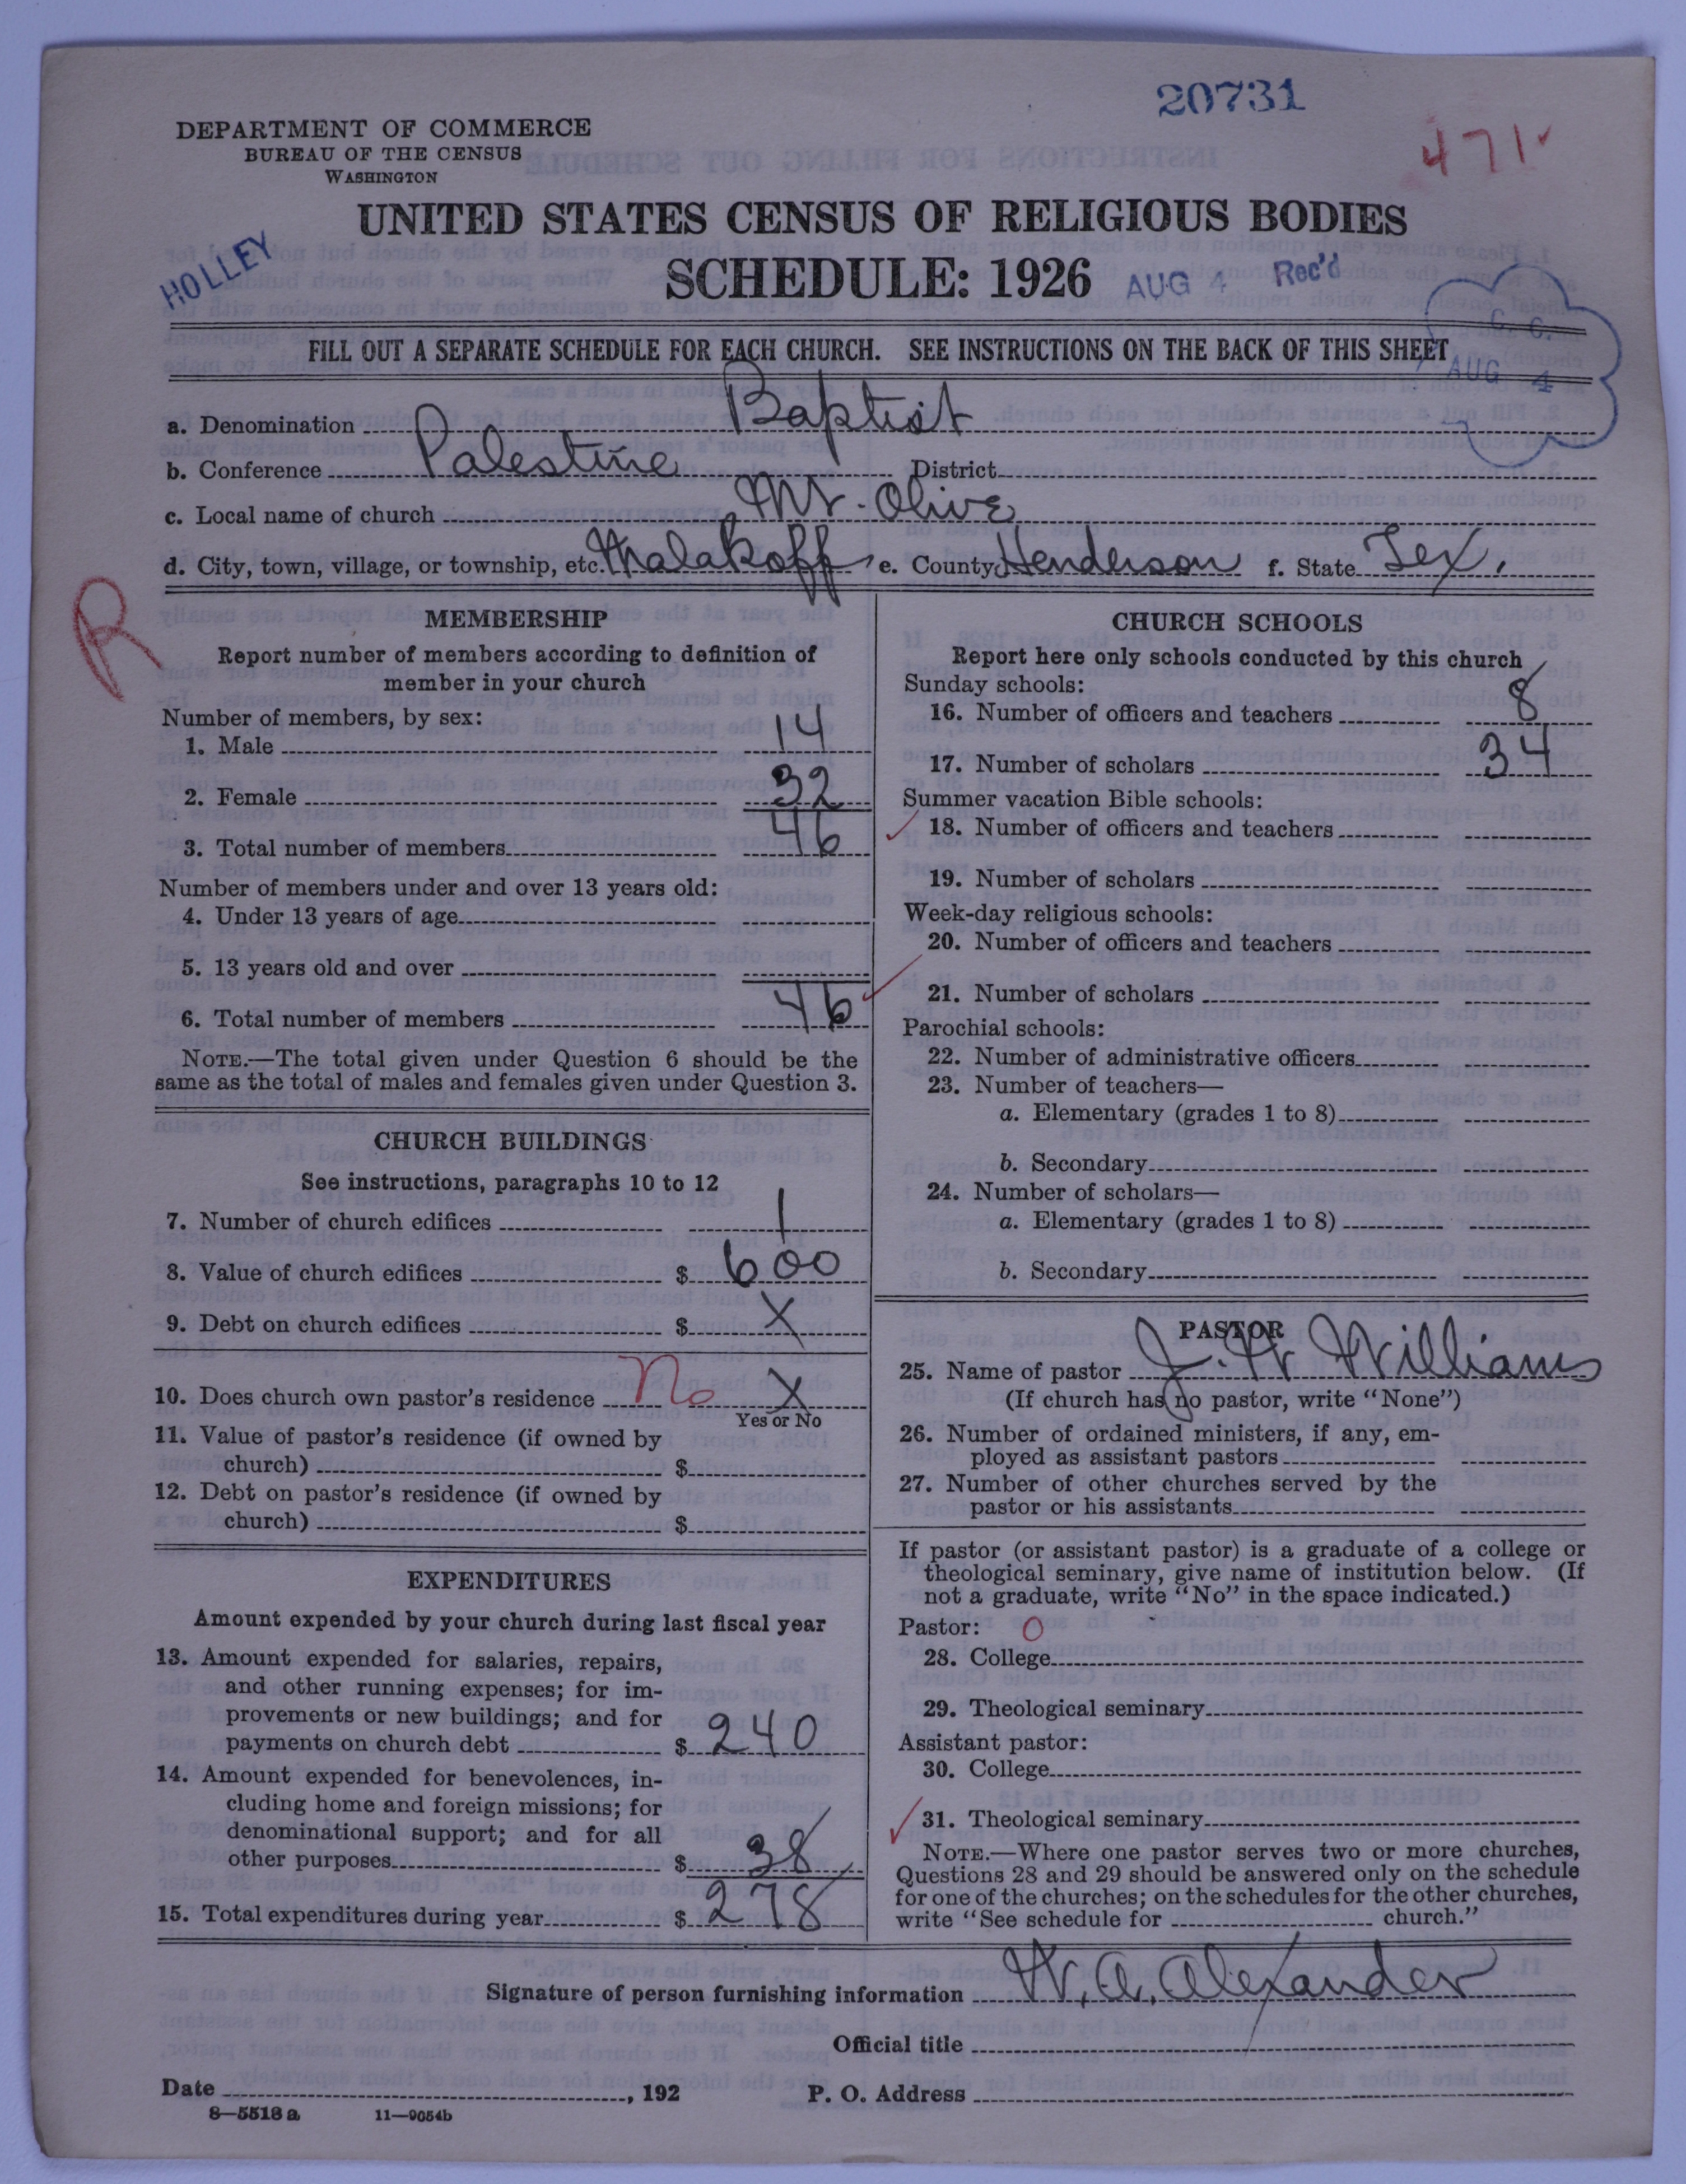 20731
471
DEPARTMENT OF COMMERCE
BUREAU OF THE CENSUS
WASHINGTON
UNITED STATES CENSUS OF RELIGIOUS BODIES
HOLLEY
SCHEDULE: 1926 AUG 4 Rec'd
C. C.
AUG 4
FILL OUT A SEPARATE SCHEDULE FOR EACH CHURCH. SEE INSTRUCTIONS ON THE BACK OF THIS SHEET
a. Denomination Baptist
b. Conference Palestine District
c. Local name of church Mt. Olive
d. City, town, village, or township, etc. Malakoff e. County Henderson f. State Tex.
R
MEMBERSHIP
Report number of members according to definition of
member in your church
Number of members, by sex:
1. Male 14
2. Female 32
3. Total number of members 46
Number of members under and over 13 years old:
4. Under 13 years of age
5. 13 years old and over
6. Total number of members 46
NOTE.—The total given under Question 6 should be the
same as the total of males and females given under Question 3.
CHURCH BUILDINGS
See instructions, paragraphs 10 to 12
7. Number of church edifices 1
8. Value of church edifices $ 600
9. Debt on church edifices $ X
10. Does church own pastor's residence No X
Yes or No
11. Value of pastor's residence (if owned by
church) $
12. Debt on pastor's residence (if owned by
church) $
EXPENDITURES
Amount expended by your church during last fiscal year
13. Amount expended for salaries, repairs,
and other running expenses; for im-
provements or new buildings; and for
payments on church debt $ 240
14. Amount expended for benevolences, in-
cluding home and foreign missions; for
denominational support; and for all
other purposes $ 38
15. Total expenditures during year $ 278
CHURCH SCHOOLS
Report here only schools conducted by this church
Sunday schools:
16. Number of officers and teachers 8
17. Number of scholars 34
Summer vacation Bible schools:
18. Number of officers and teachers
19. Number of scholars
Week-day religious schools:
20. Number of officers and teachers
21. Number of scholars
Parochial schools:
22. Number of administrative officers
23. Number of teachers—
a. Elementary (grades 1 to 8)
b. Secondary
24. Number of scholars—
a. Elementary (grades 1 to 8)
b. Secondary
PASTOR
25. Name of pastor J. W. Williams
(If church has no pastor, write "None")
26. Number of ordained ministers, if any, em-
ployed as assistant pastors
27. Number of other churches served by the
pastor or his assistants
If pastor (or assistant pastor) is a graduate of a college or
theological seminary, give name of institution below. (If
not a graduate, write "No" in the space indicated.)
Pastor: O
28. College
29. Theological seminary
Assistant pastor:
30. College
31. Theological seminary
NOTE.—Where one pastor serves two or more churches,
Questions 28 and 29 should be answered only on the schedule
for one of the churches; on the schedules for the other churches,
write "See schedule for church."
Signature of person furnishing information W. A. Alexander
Official title
Date , 192 P. O. Address
8—5518 a 11—9054b